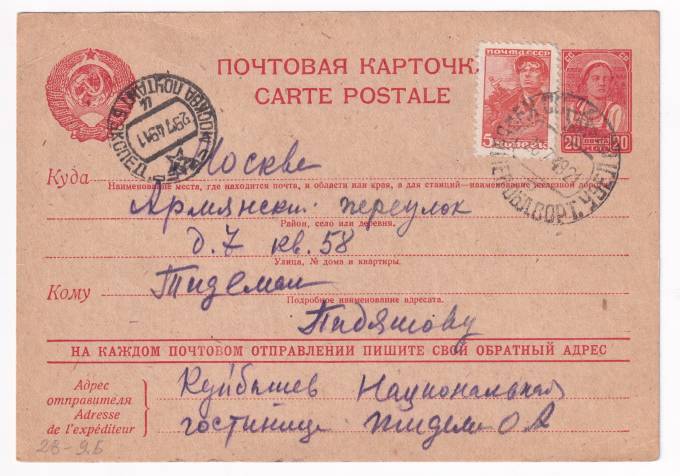 ПОЧТОВАЯ КАРТОЧКА
CARTE POSTALE
ПОЧТА СССР
5 КОПЕЕК
20 ПОЧТА 20
Куда Москва
Наименование места, где находится почта, и области или края, а для станций—наименование железной дороги
Армянский переулок
Район, село или деревня.
д. 7 кв. 58
Улица, № дома и квартиры.
Кому Тидеман
Подробное наименование адресата.
НА КАЖДОМ ПОЧТОВОМ ОТПРАВЛЕНИИ ПИШИТЕ СВОЙ ОБРАТНЫЙ АДРЕС
Адрес
отправителя
Adresse
de l'expéditeur
Куйбышев Национальная
гостиница
28-9Б